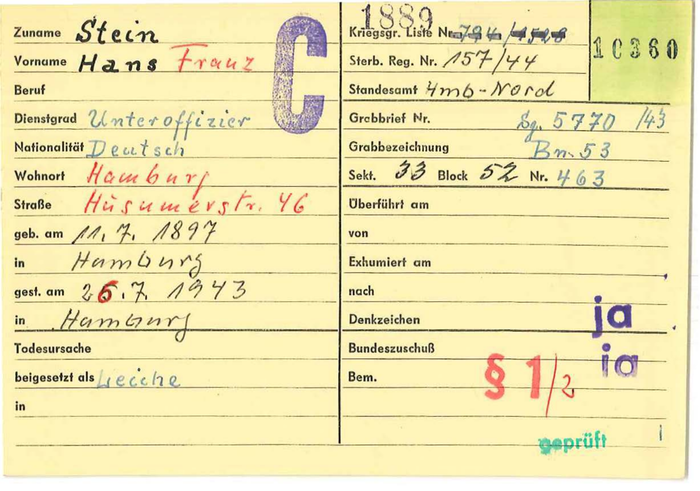 Zuname Stein
Vorname Hans Franz
Beruf
Dienstgrad Unteroffizier
Nationalität Deutsch
Wohnort Hamburg
Straße Husumerstr. 46
geb. am 11. 7. 1897
in Hamburg
gest. am 26. 7. 1943
in Hamburg
Todesursache
beigesetzt als Leiche
in
C
1889
Kriegsgr. Liste Nr. 794/1528
10360
Sterb. Reg. Nr. 157/44
Standesamt Hmb-Nord
Grabbrief Nr. 5770 /43
Grabbezeichnung Bn. 53
Sekt. 33 Block 52 Nr. 463
Überführt am
von
Exhumiert am
nach
Denkzeichen ja
Bundeszuschuß ja
Bem. § 1/2
geprüft